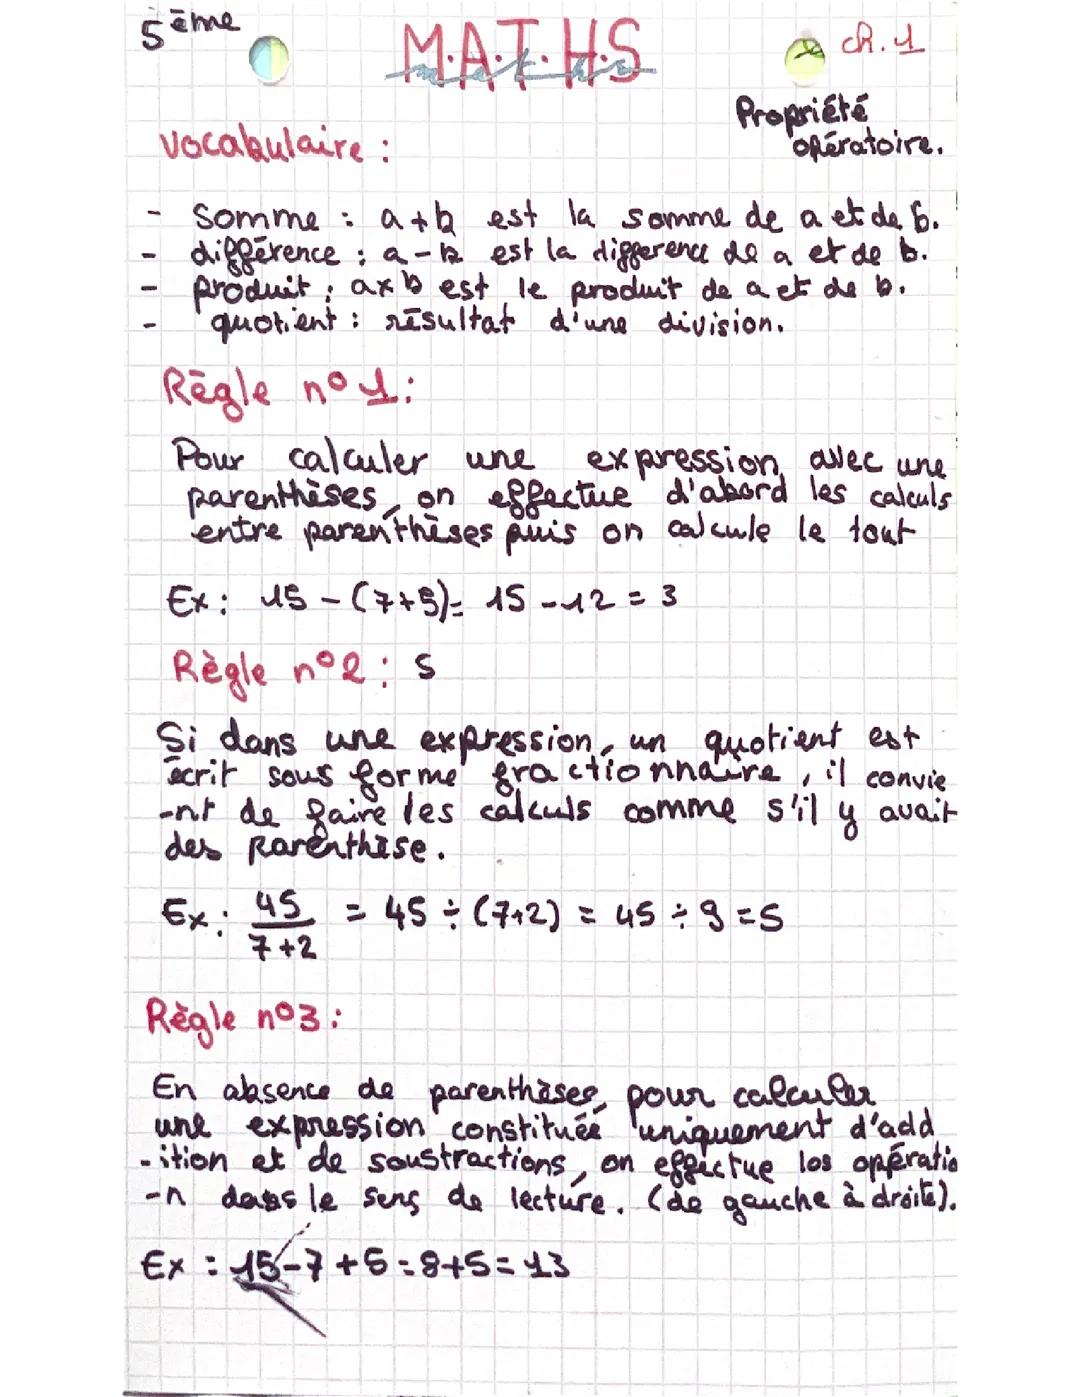 5ème
M.A.T.H.S
maths
ch. 1
Propriété
opératoire.
vocabulaire :
- Somme : a+b est la somme de a et de b.
- différence : a-b est la difference de a et de b.
- produit : axb est le produit de a et de b.
- quotient : résultat d'une division.
Règle n°1 :
Pour calculer une expression avec une
parenthèses, on effectue d'abord les calculs
entre parenthèses puis on calcule le tout
Ex : 15 - (7+5) = 15 - 12 = 3
Règle n°2 : S
Si dans une expression, un quotient est
écrit sous forme fractionnaire, il convie
-nt de faire les calculs comme s'il y avait
des parenthèse.
Ex : 45/7+2 = 45 ÷ (7+2) = 45 ÷ 9 = 5
Règle n°3 :
En absence de parenthèses, pour calculer
une expression constituée uniquement d'add
-ition et de soustractions, on effectue les opératio
-n dans le sens de lecture. (de gauche à droite).
Ex : 15-7+5 = 8+5 = 13